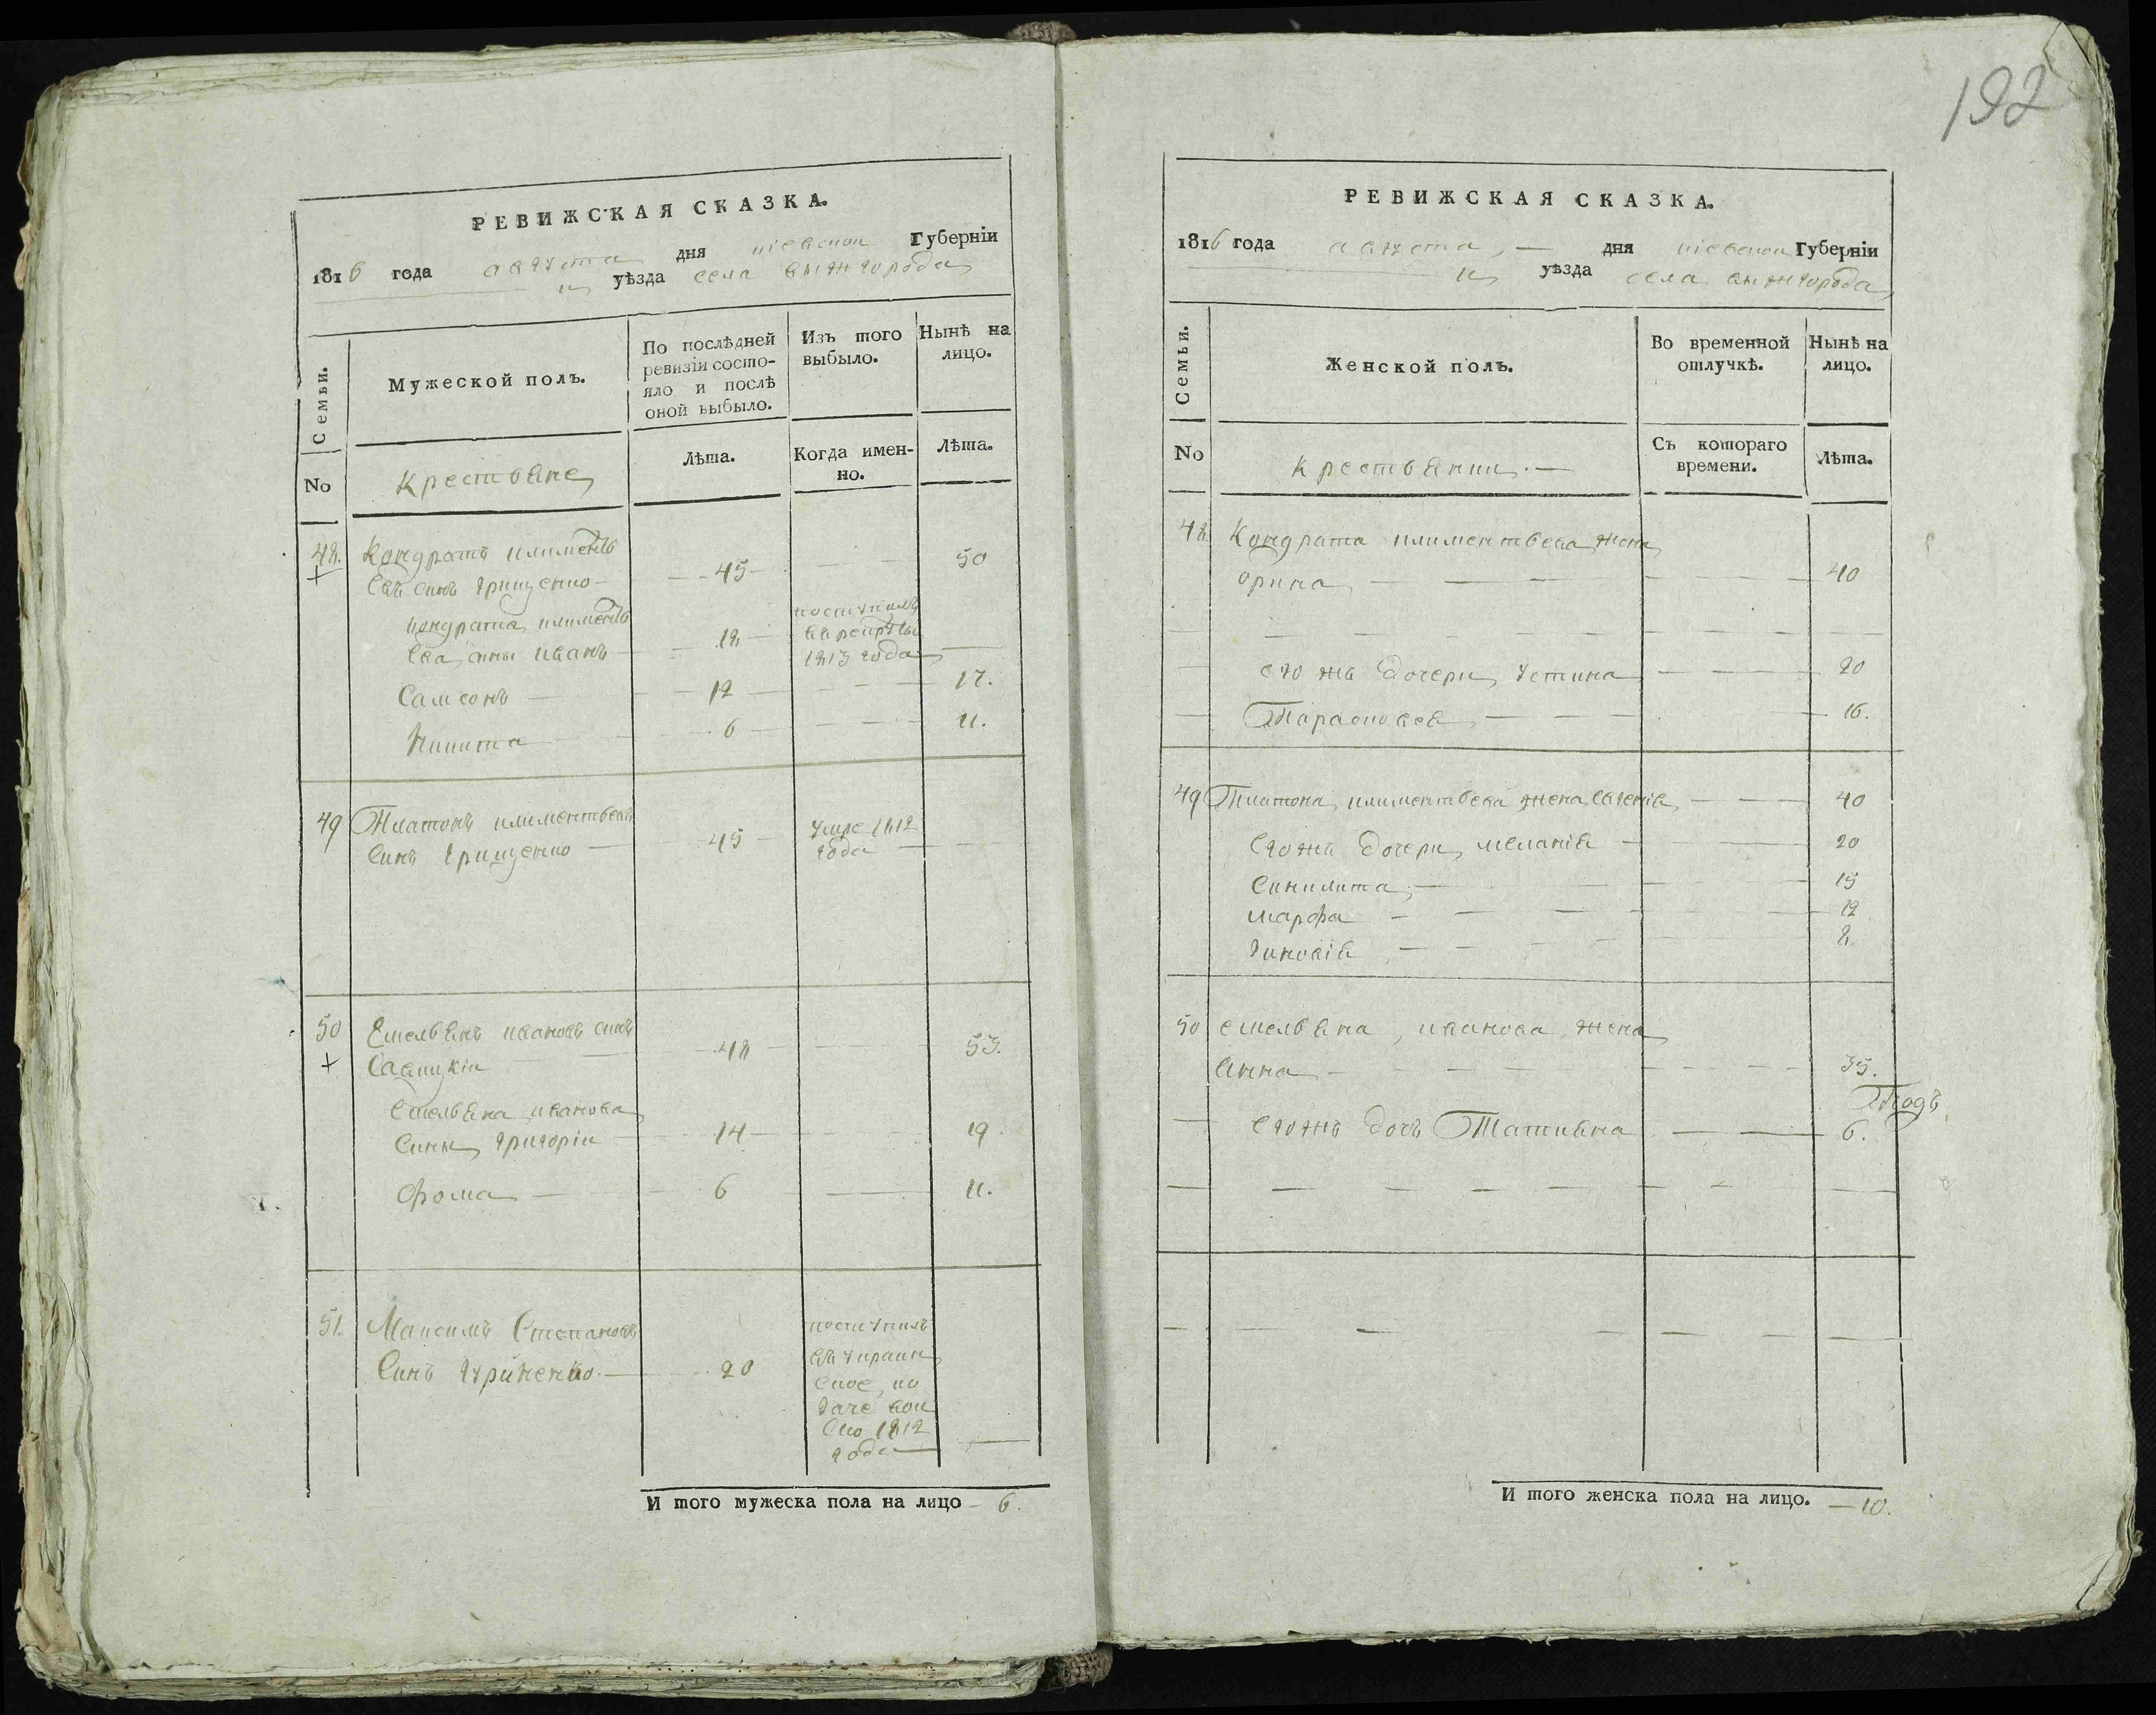 192
РЕВИЖСКАЯ СКАЗКА.
1816 года августа дня киевской Губерніи
уѣзда села вышгорода
Семьи.
Мужеской полъ.
По послѣдней ревизіи состояло и послѣ оной выбыло.
Изъ того выбыло.
Нынѣ на лицо.
No
крестьяне
Лѣта.
Когда именно.
Лѣта.
48. Кондратъ климентьевъ синъ грищенко — 45 — 50
кондрата климентьева сины иванъ — 18 — поступилъ въ рекруты 1813 года —
Самсонъ — 12 — 17.
Никита — 6 — 11.
49 Платонъ климентьевъ синъ грищенко — 45 — умре 1812 года —
50 Емельянъ ивановъ синъ — 48 — 53.
Емельяна иванова
сины григорій — 14 — 19.
фома — 6 — 11.
51. Максимъ Степановъ
синъ — 20
поступилъ
въ украин
ское, ко
заче вой
ско 1812
года —
И того мужеска пола на лицо — 6.
РЕВИЖСКАЯ СКАЗКА.
1816 года августа, — дня киевской Губерніи
уѣзда села вышгорода
Семьи.
Женской полъ.
Во временной отлучкѣ.
Нынѣ на лицо.
No
крестьянки. —
Съ котораго времени.
Лѣта.
48. Кондрата климентьева жена
орина — 40
его жъ дочери, устина — 20
Парасковея — 16.
49 Платона климентьева жена евгенія — 40
его жъ дочери, меланія — 20
Синклита, — 15
марфа — 12
зиновія, — 8.
50 емельяна, иванова, жена
анна — 35.
его жъ дочь Татияна — 6.
И того женска пола на лицо. — 10.